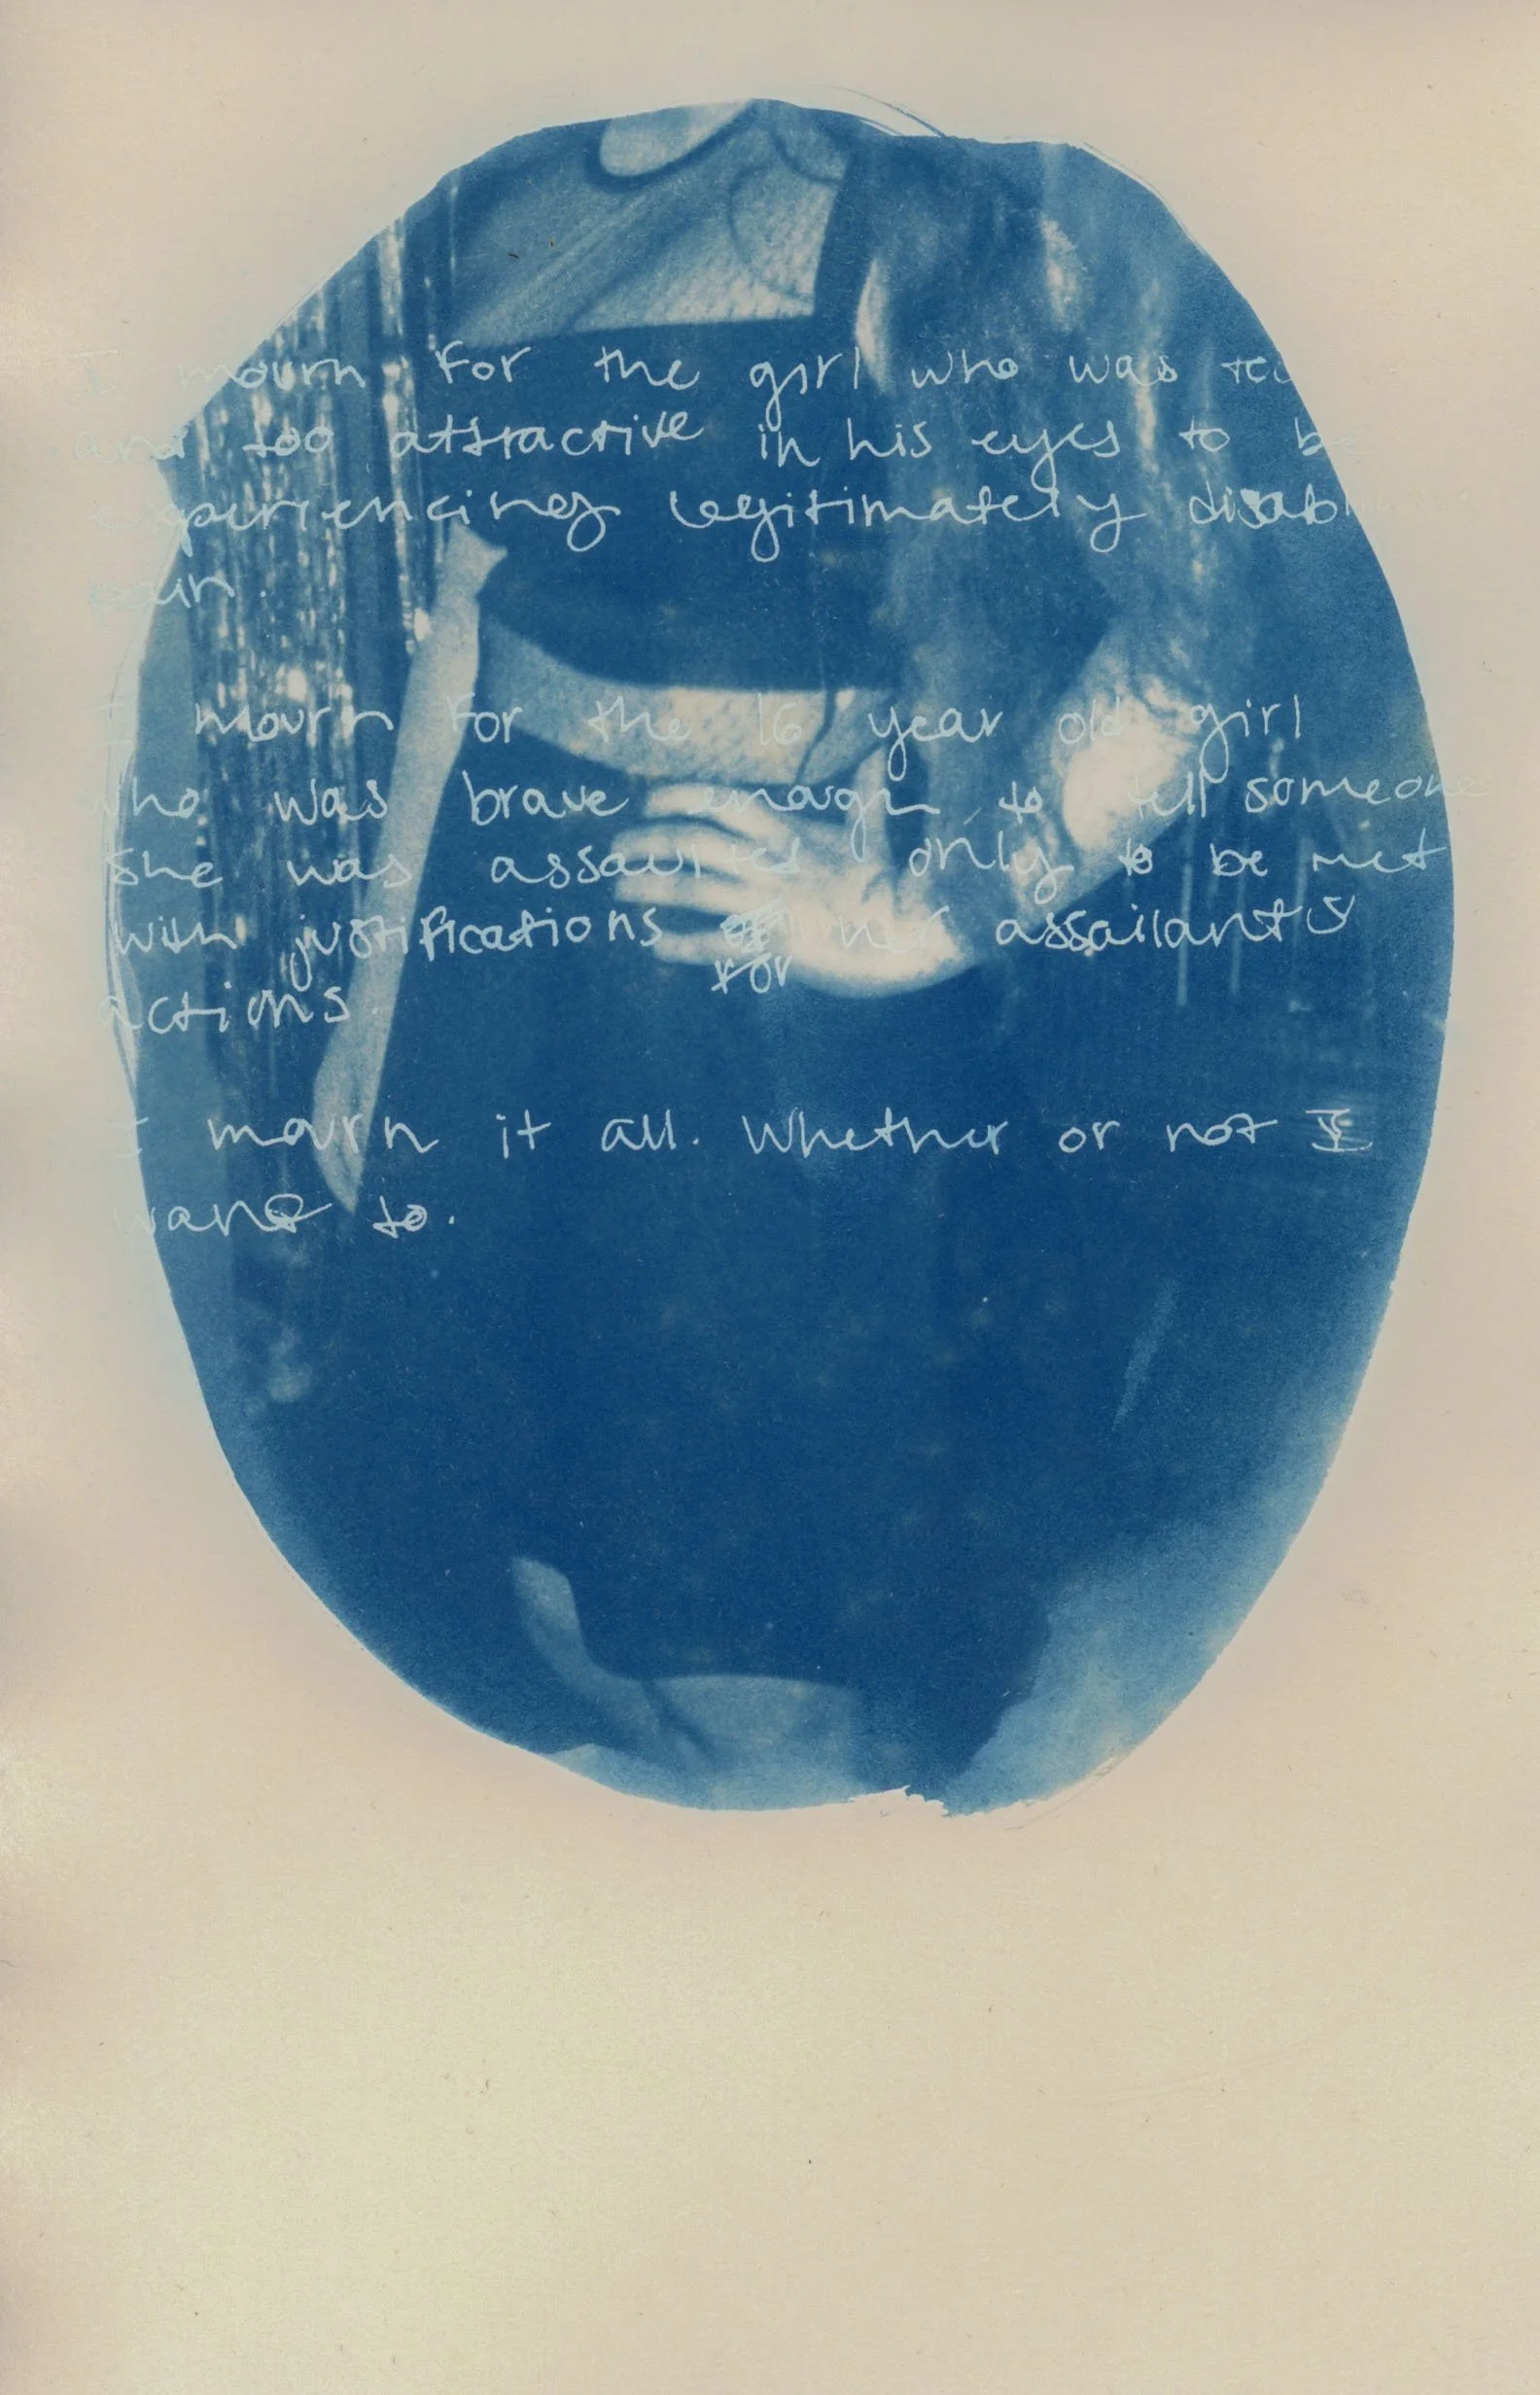 I mourn for the girl who was
and too attractive in his eyes to
experiencing legitimately
pain.
I mourn for the 16 year old girl
who was brave enough to tell someone
she was assaulted only to be met
with justifications for her assailants
actions.
I mourn it all. Whether or not I
want to.